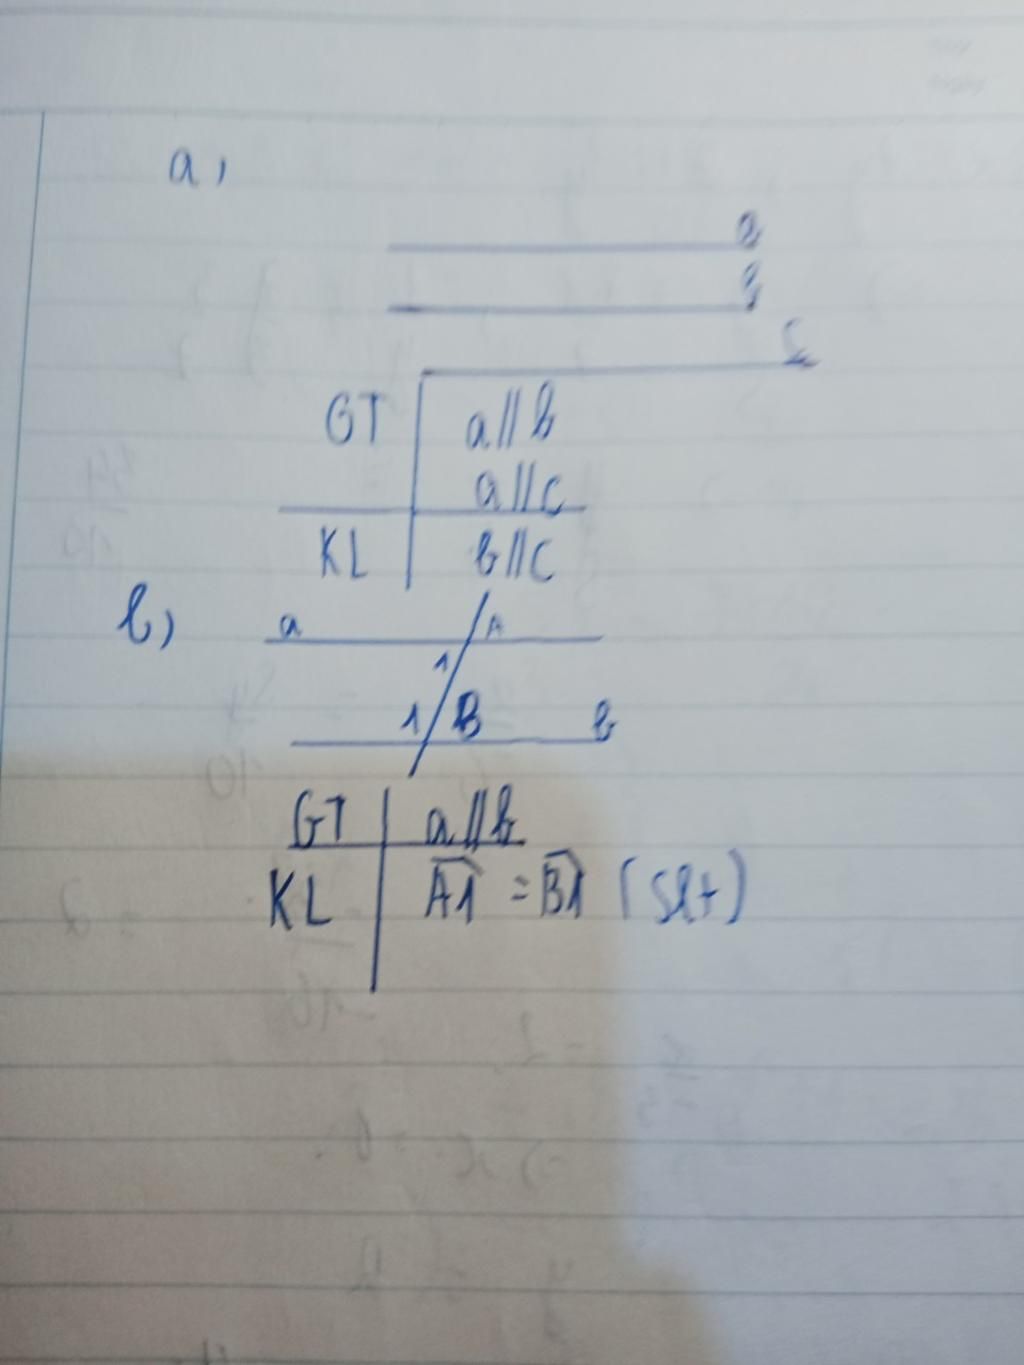 a,
a
b
c
GT a//b
a//c
KL b//c
b) a A
1
1 B b
GT a//b
KL A1 = B1 (slt)